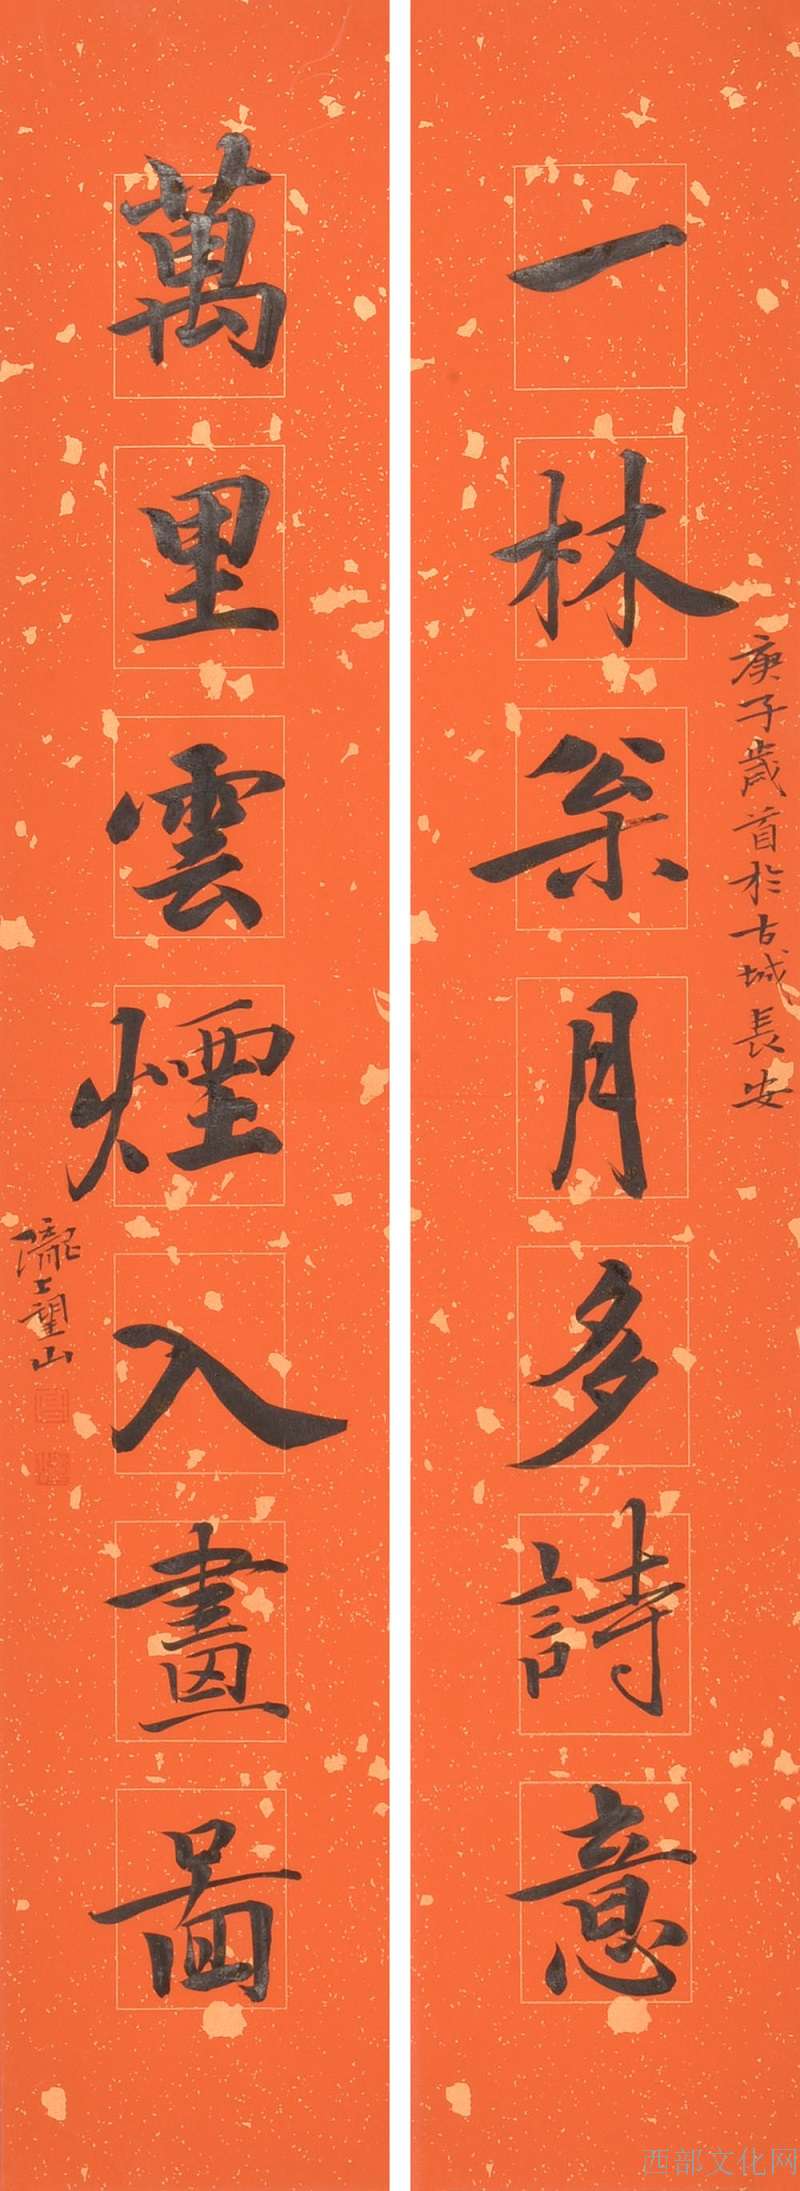 一林枀月多詩意
庚子歲首於古城長安
萬里雲煙入畫圖
上望山
西部文化网